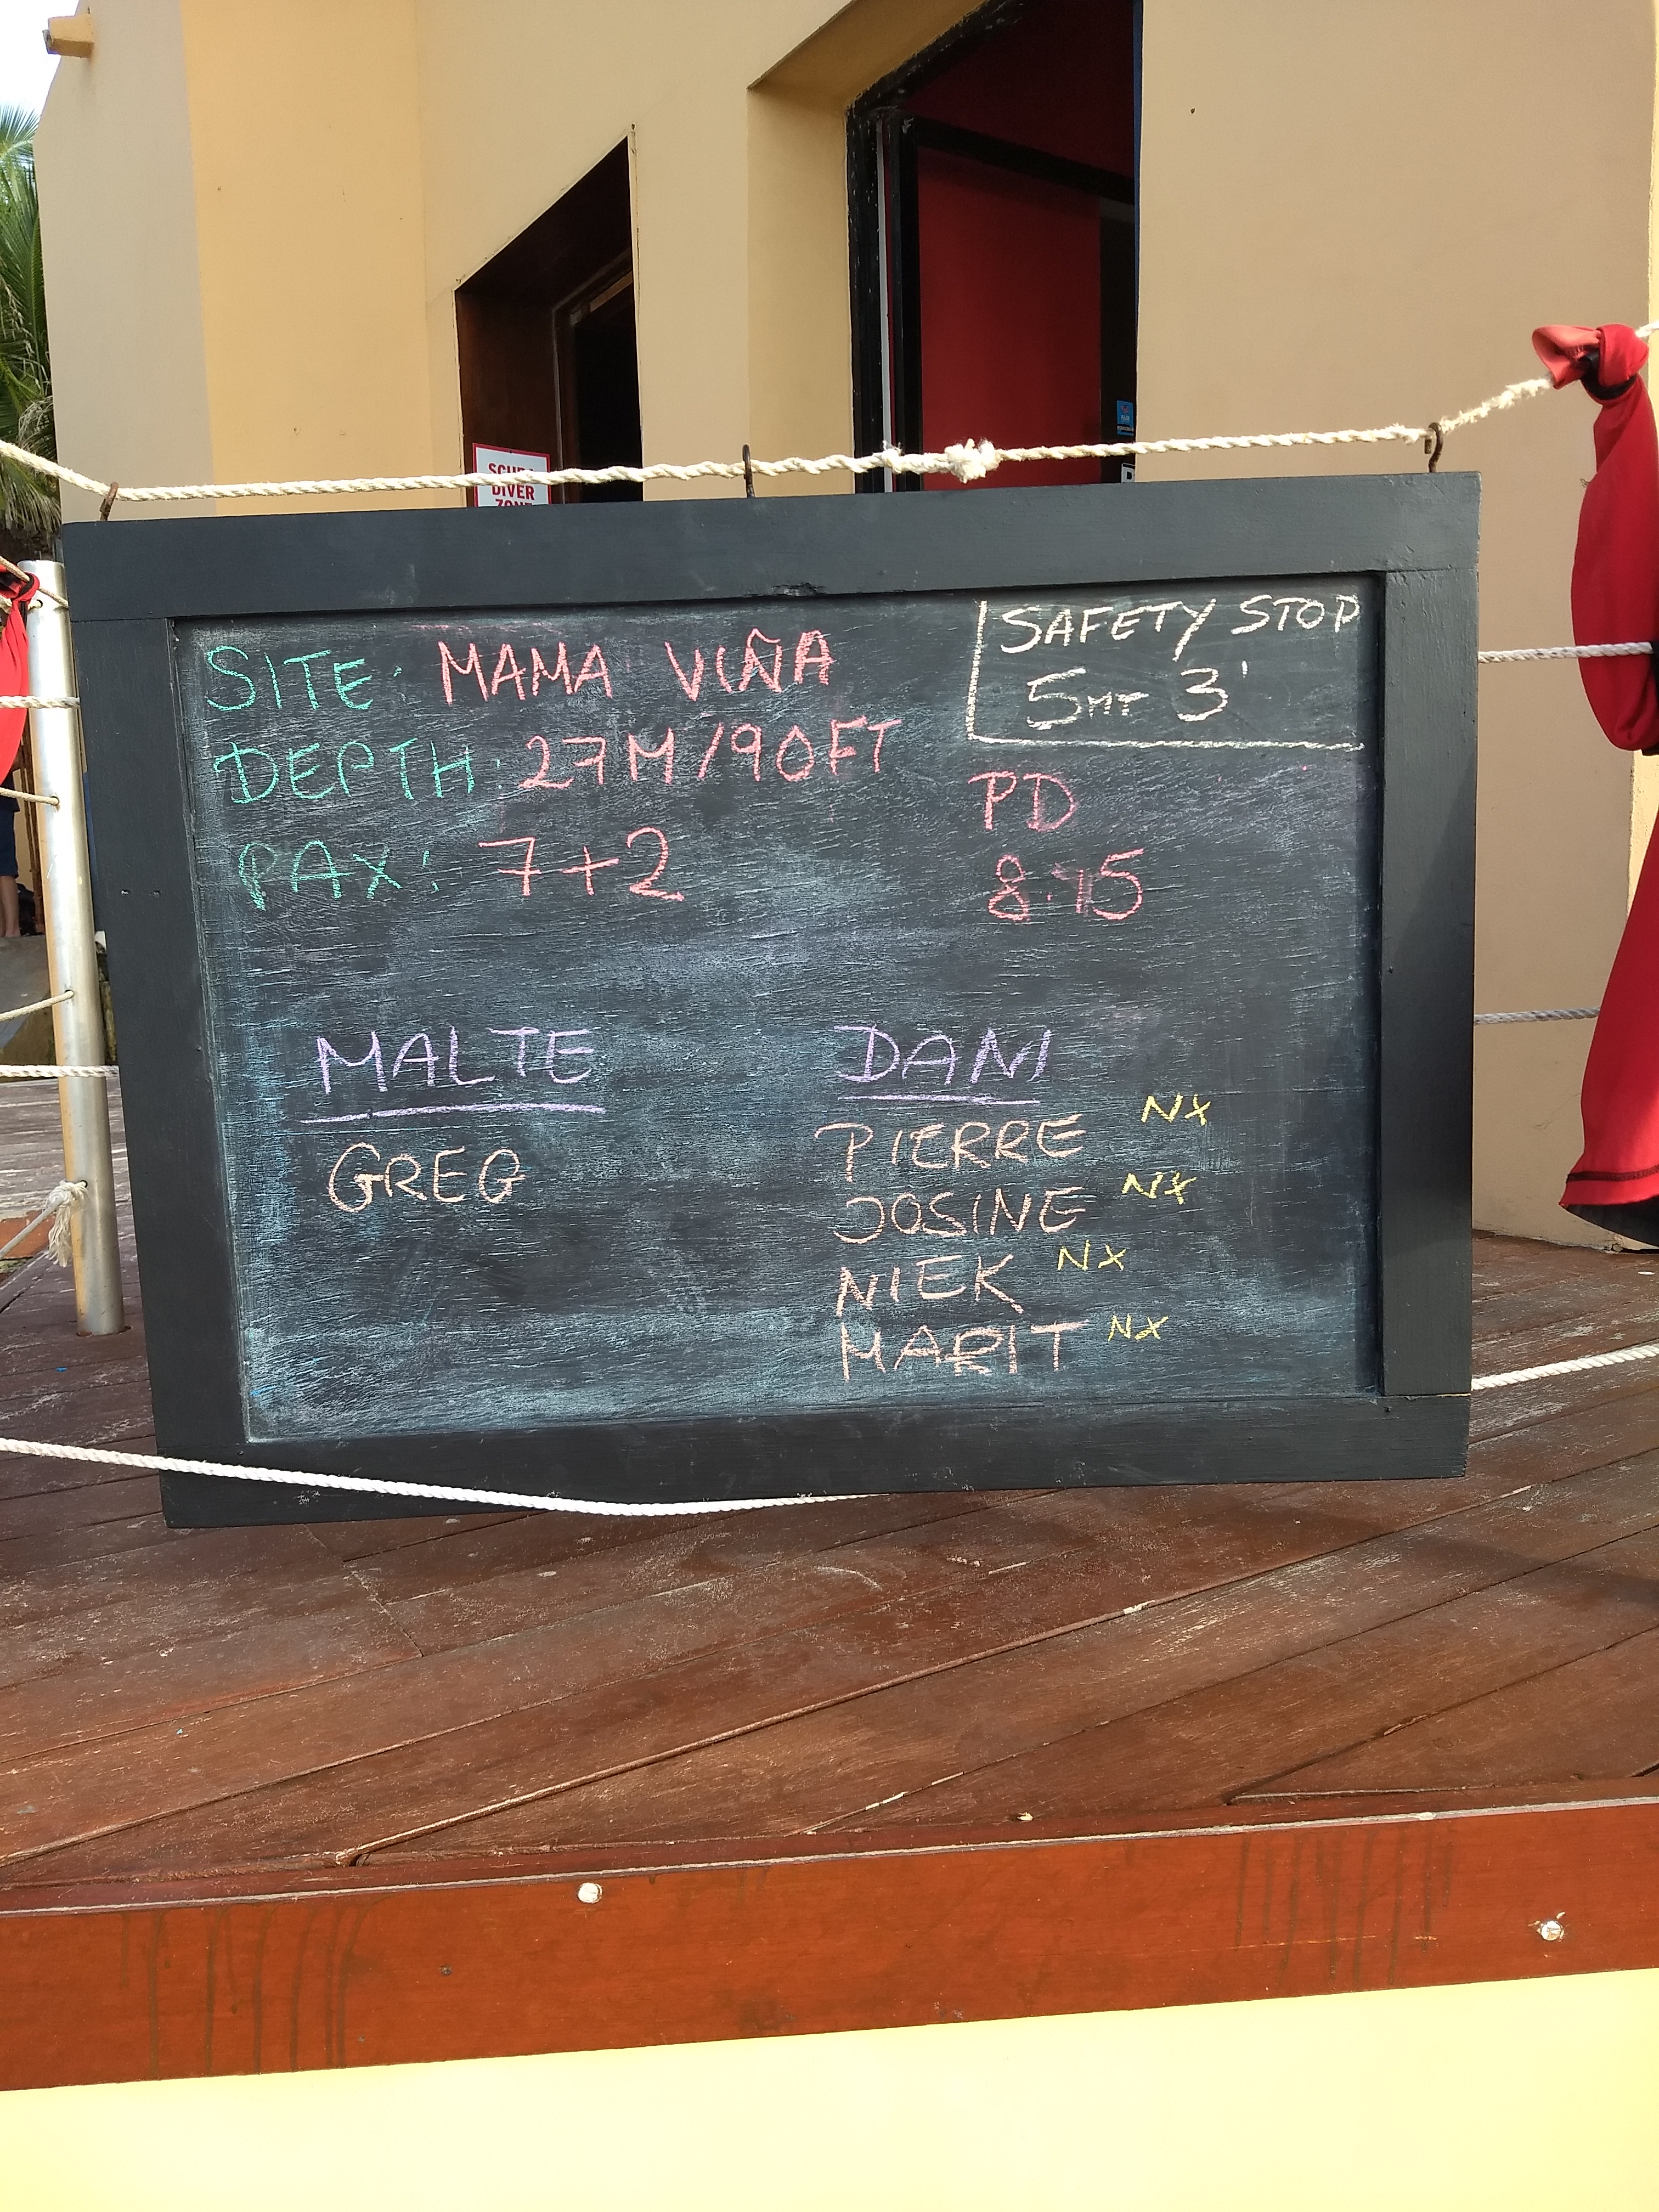 SCUBA
DIVER
ZONE
SITE: MAMA VIÑA
DEPTH: 27M/90FT
PAX: 7+2
SAFETY STOP
5MT 3'
PD
8:15
MALTE
GREG
DANI
PIERRE NX
JOSINE NX
NIEK NX
MARIT NX